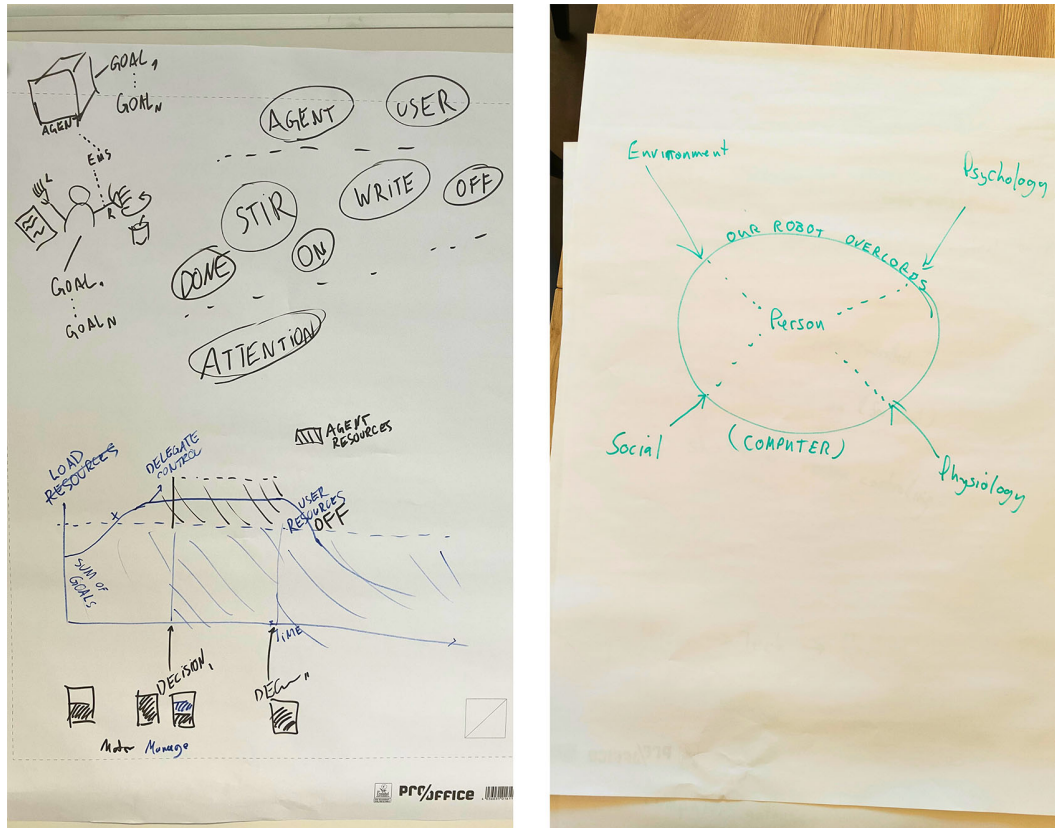 GOAL,
GOALN
AGENT
EMS
GOAL,
GOALN
AGENT
USER
STIR
WRITE
OFF
DONE
ON
ATTENTION
AGENT
RESOURCES
LOAD
RESOURCES
DELEGATE
CONTROL
USER
RESOURCES
OFF
SUM OF
GOALS
TIME
DECISION,
Motor Manage
PRO/OFFICE
Environment
Psychology
OUR ROBOT OVERLORDS
Person
Social
(COMPUTER)
Physiology